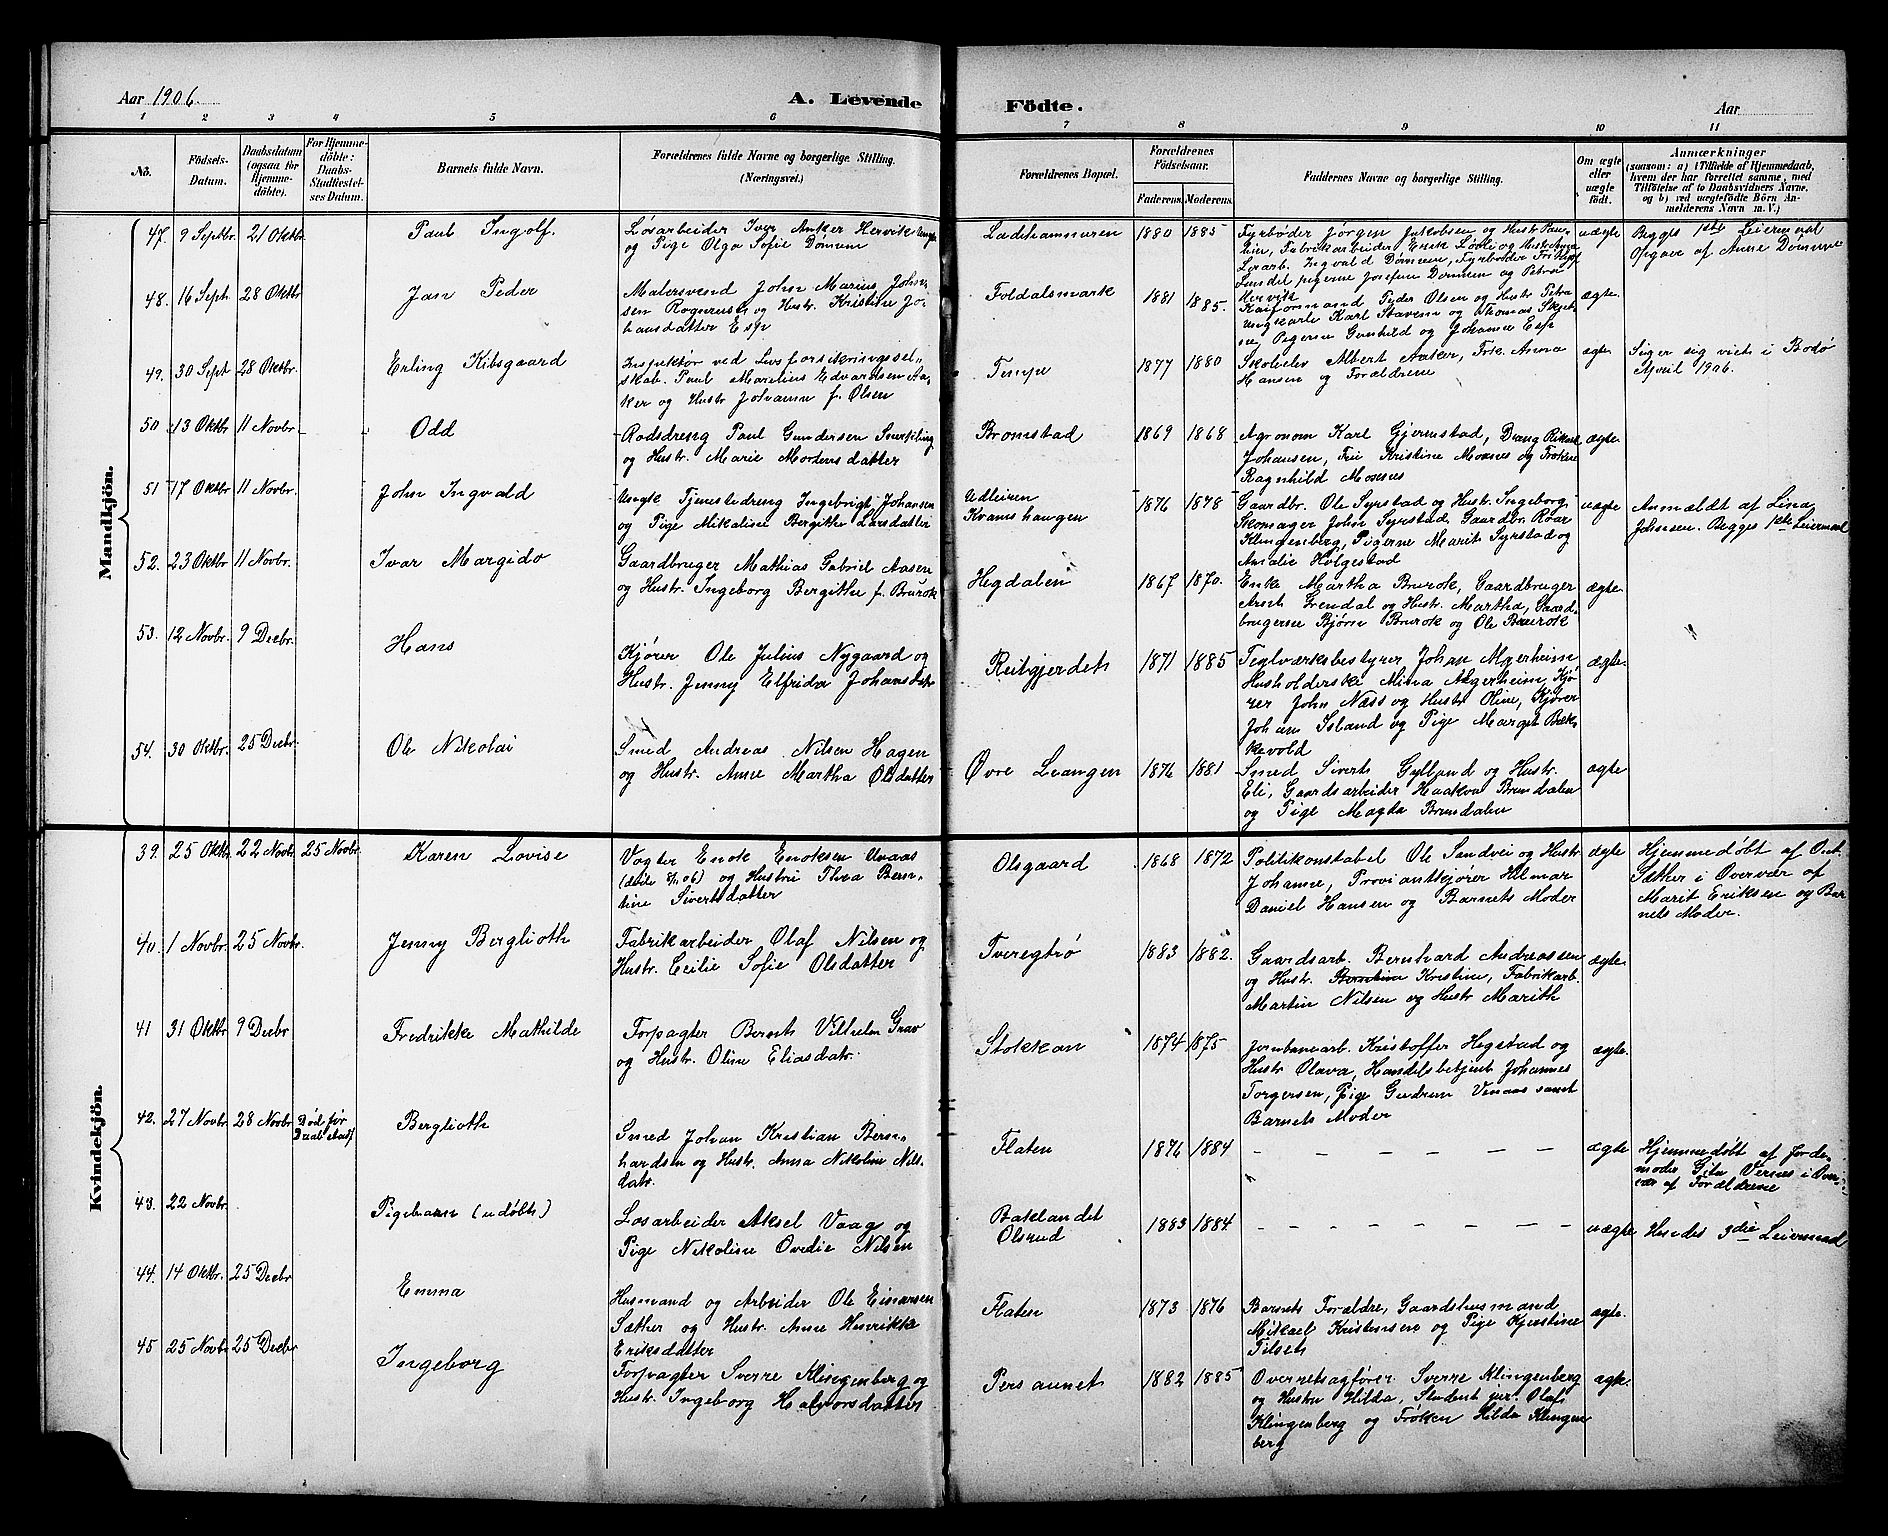 Aar 1906.
A. Levende
Födte.
Aar
1 2 3 4 5 6 7 8 9 10 11
No.
Födsels-Datum.
Daabsdatum (ogsaa for Hjemmedöbte).
For Hjemmedöbte: Daabs-Stadfæstelses Datum.
Barnets fulde Navn.
Forældrenes fulde Navne og borgerlige Stilling. (Næringsvei.)
Forældrenes Bopæl.
Forældrenes Födselsaar.
Faderens. Moderens.
Faddernes Navne og borgerlige Stilling.
Om ægte eller uægte födt.
Anmærkninger
(saasom: a) i Tilfælde af Hjemmedaab, hvem der har forrettet samme, med Tilföielse af to Daabsvidners Navne, og b) ved uægtefödte Börn Anmelderens Navn m. V.)
Mandkjön.
47. 9 Septbr. 21 Oktbr. Paul Ingolf.
Løsarbeider Iver Anker Hervik Ungk.
og Pige Olga Sofie Dømen
Ladehammeren 1880 1885
Fyrbøder Jørgen Jakobsen og Hustr Pau-
line, Fabrikarbeider Enok Løvli og Hustr Anna
Lerarb. Ingvald Dømeen, Fyrbøder Fritjof
Lundel pigerne Josefine Dømeen og Petra
Hervik
uægte Begges 1ste Leiermaal
Opgave af Anne Dømme
48. 16 Sept. 28 Oktbr Jan Peder
Malersvend John Marius John-
sen Rognerust og Hustr. Kristine Jo-
hansdatter Esp
Foldalsmark 1881 1885.
Kaiformand Peder Olsen og Hustr Petra
Ungkarle Karl Stavem og Thomas Skjet-
ne, Pigerne Gunhild og Johanne Esp
ægte.
49. 30 Sept 28 Oktbr. Erling Kibsgaard
Inspektør ved Livsforsikringssel-
skab. Paul Marelius Edvardsen Aa-
ker og Hustr Johanna f. Olsen
Tempe 1877 1880
Skoleelev Albert Aaker, Frk. Anna
Hansen og Forældrene
ægte Siger sig viet i Bodø
April 1906.
50 13 Oktbr 11 Novbr. Odd
Rodsdreng Paul Gundersen Snurkling
og Hustr. Marie Mortensdatter
Bromstad 1869 1868
Agronom Karl Gjermstad, Dreng Rikard
Johansen, Frk Kristine Moxnes og Frøken
Ragnhild Moxnes
ægte.
51 17 Oktbr 11 Novbr. John Ingvald
Ungk Tjenestedreng Ingebrigt Johansen
og Pige Mikaline Bergithe Larsdatter
Udleiren
Kramshaugen 1876 1878
Gaardbr. Ole Syrstad og Hustr. Ingeborg,
Skomager John Syrstad, Gaardbr. Roar
Klingenberg, Pigerne Marit Syrstad og
Amalie Holgestad
uægte Anmældt af Lina
Johnsen. Begges 1ste Leiermaal
52. 23 Oktbr 11 Novbr. Ivar Margido
Gaardbruger Mathias Gabriel Aasen
og Hustr. Ingeborg Bergithe f. Brurok
Hegdalen 1867 1870.
Enke Martha Brurok, Gaardbruger
Arnt Frendal og Hustr. Martha, Gaard
brugerne Bjørn Brurok og Ole Brurok
ægte.
53. 12 Novbr. 9 Decbr. Hans
Kjører Ole Julius Nygaard og
Hustr. Jenny Elfrida Johansdtr
Reitgjerdet 1871 1885
Teglværksbestyrer Johan Agerheim
Husholderske Mina Agerheim, Kjø-
rer John Næss og Hustr Oline, Kjører
Johan Island og Pige Margit Bæk-
kevold
ægte.
54. 30 Oktbr. 25 Decbr. Ole Nikolai
Smed Andreas Nilsen Hagen
og Hustr. Anne Martha Olsdatter
Øvre Leangen 1876 1881
Smed Sivert Gylland og Hustr.
Eli, Gaardsarbeider Haakon Brendalen
og Pige Magda Brendalen
ægte
Kvindekjön.
39. 25 Oktbr. 22 Novbr. 25 Novbr. Karen Lovise
Vogter Enok Enoksen Unaas
og Hustru Thea Bern-
tine Sivertsdatter
Olsgaard 1868 1872
Politikonstabel Ole Sandvei og Hustr
Johanne, Proviantkjører Hilmar
Daniel Hansen og Barnets Moder
ægte Hjemmedøbt af
Sæther i Overvær af
Marit Eriksen og Bar
nets Moder.
40. 1 Novbr. 25 Novbr. Jenny Berglioth
Fabrikarbeider Olaf Nilsen og
Hustr. Cecilie Sofie Olsdatter
Tveregtrø 1883 1882.
Gaardsarb. Bernhard Andreassen
og Hustr. Berntine Kristine, Fabrikarb.
Martin Nilsen og Hustr Marith
ægte.
41 31 Oktbr 9 Decbr Fredrikke Mathilde
Forpagter Bernt Vilhelm Grav
og Hustr. Oline Eliasdatr.
Stokkan 1874 1875
Jernbanearb. Kristoffer Hegstad og
Hustr Olava, Handelsbetjent Johannes
Torgersen, Pige Gudrun Vinaas samt
Barnets Moder
ægte.
42. 27 Novbr 28 Novbr Død før
Daabstadf. Berglioth
Smed Johan Kristian Bern-
hardsen og Hustr. Anna Nikoline Nils-
datr.
Flaten 1876 1884 — — — — — —
ægte Hjemmedøbt af Jorde-
moder Gita Vernes i Over-
vær af Forældrene
43. 22 Novbr. Pigebarn (udøbt)
Løsarbeider Aksel Vaag og
Pige Nikoline Ovedie Nilsen
Baklandet
Olsrud 1883 1884 — — — — — —
uægte Hendes 3die Leiermaal
44. 14 Oktbr. 25 Decbr Emma
Husmand og Arbeider Ole Einarsen
Sæther og Hustr. Anne Henrikke
Eriksdatter
Flaten 1873 1876
Barnets Forældre, Gaardshusmand
Mikael Kristensen og Pige Kjerstine
Tilset
ægte.
45 25 Novbr 25 Decbr Ingeborg
Forpagter Sverre Klingenberg og
Hustr. Ingeborg Halvorsdatter
Persaunet 1882 1885
Overretssagfører Sverre Klingenberg
og Hustru Hilda, Student jur. Olaf
Klingenberg og Frøken Hilda Klingen
berg
ægte.